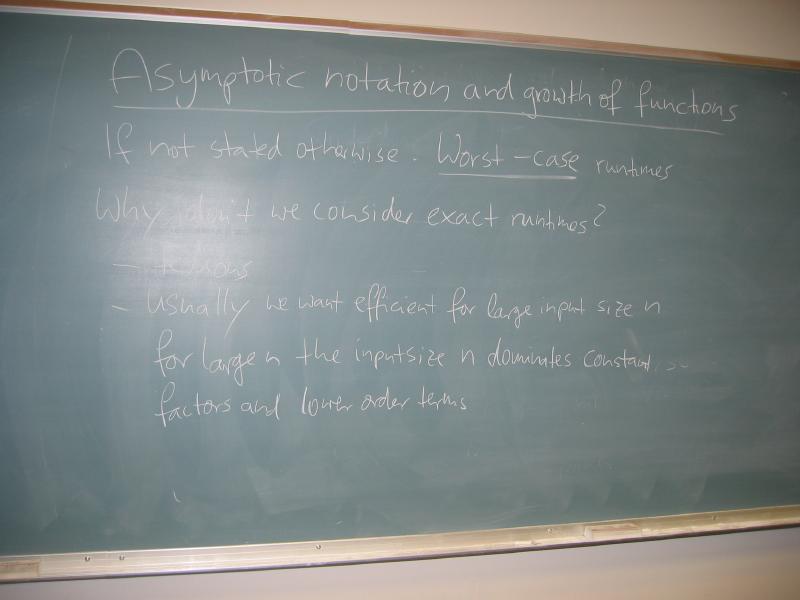 Asymptotic notation and growth of functions
If not stated otherwise. Worst-case runtimes
Why don't we consider exact runtimes?
-
- usually we want efficient for large input size n
for large n the inputsize n dominates constant
factors and lower order terms